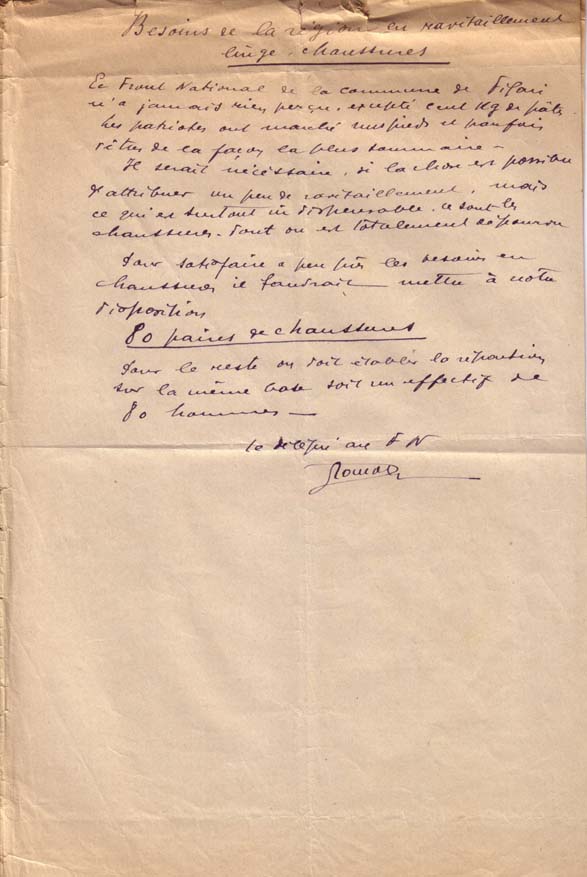 Besoins de la région en ravitaillement
linge, chaussures
Le Front National de la commune de Figari
n'a jamais rien perçu, excepté cent kg de pâte.
Les patriotes ont marché nus pieds et parfois
vêtus de la façon la plus sommaire –
Il serait nécessaire, si la chose est possible
d'attribuer un peu de ravitaillement, mais
ce qui est surtout indispensable, ce sont les
chaussures. dont on est totalement dépourvu
Pour satisfaire a peu près les besoins en
chaussures il faudrait mettre à notre
disposition
80 paires de chaussures
Pour le reste on doit établir la répartition
sur la même base soit un effectif de
80 hommes –
le délégué au F N